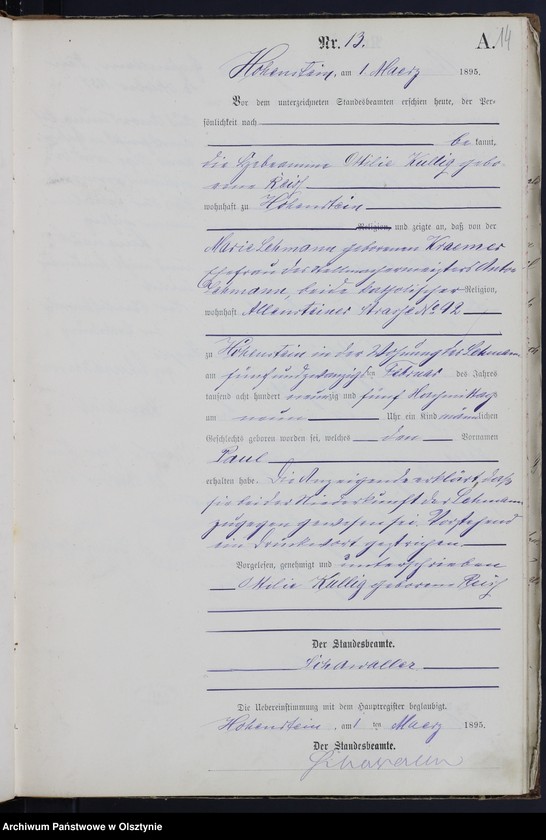 Nr. 13. A. 14
Hohenstein, am 1 Maerz 1895.
Vor dem unterzeichneten Standesbeamten erschien heute, der Per-
sönlichkeit nach
be kannt,
die Hebeamme Ottilie Kullig gebo-
rene Reich
wohnhaft zu Hohenstein
Religion, und zeigte an, daß von der
Marie Lehmann geborenen Kraemer
Ehefrau des Stellmachermeisters Anton
Lehmann, beide katholischer Religion,
wohnhaft Allensteiner Strasse No 92
zu Hohenstein in der Wohnung des Lehmann
am fünfundzwanzigsten Februar des Jahres
tausend acht hundert neunzig und fünf Nachmittags
um neun Uhr ein Kind männlichen
Geschlechts geboren worden sei, welches den Vornamen
Paul
erhalten habe. Die Anzeigende erklärt, daß
sie bei der Niederkunft der Lehmann
zugegen gewesen sei. Vorstehend
ein Druckwort gestrichen.
Vorgelesen, genehmigt und unterschrieben
Ottilie Kullig geborene Reich
Der Standesbeamte.
Schawaller
Die Uebereinstimmung mit dem Hauptregister beglaubigt.
Hohenstein, am 1 ten Maerz 1895.
Der Standesbeamte.
Schawaller
Archiwum Państwowe w Olsztynie